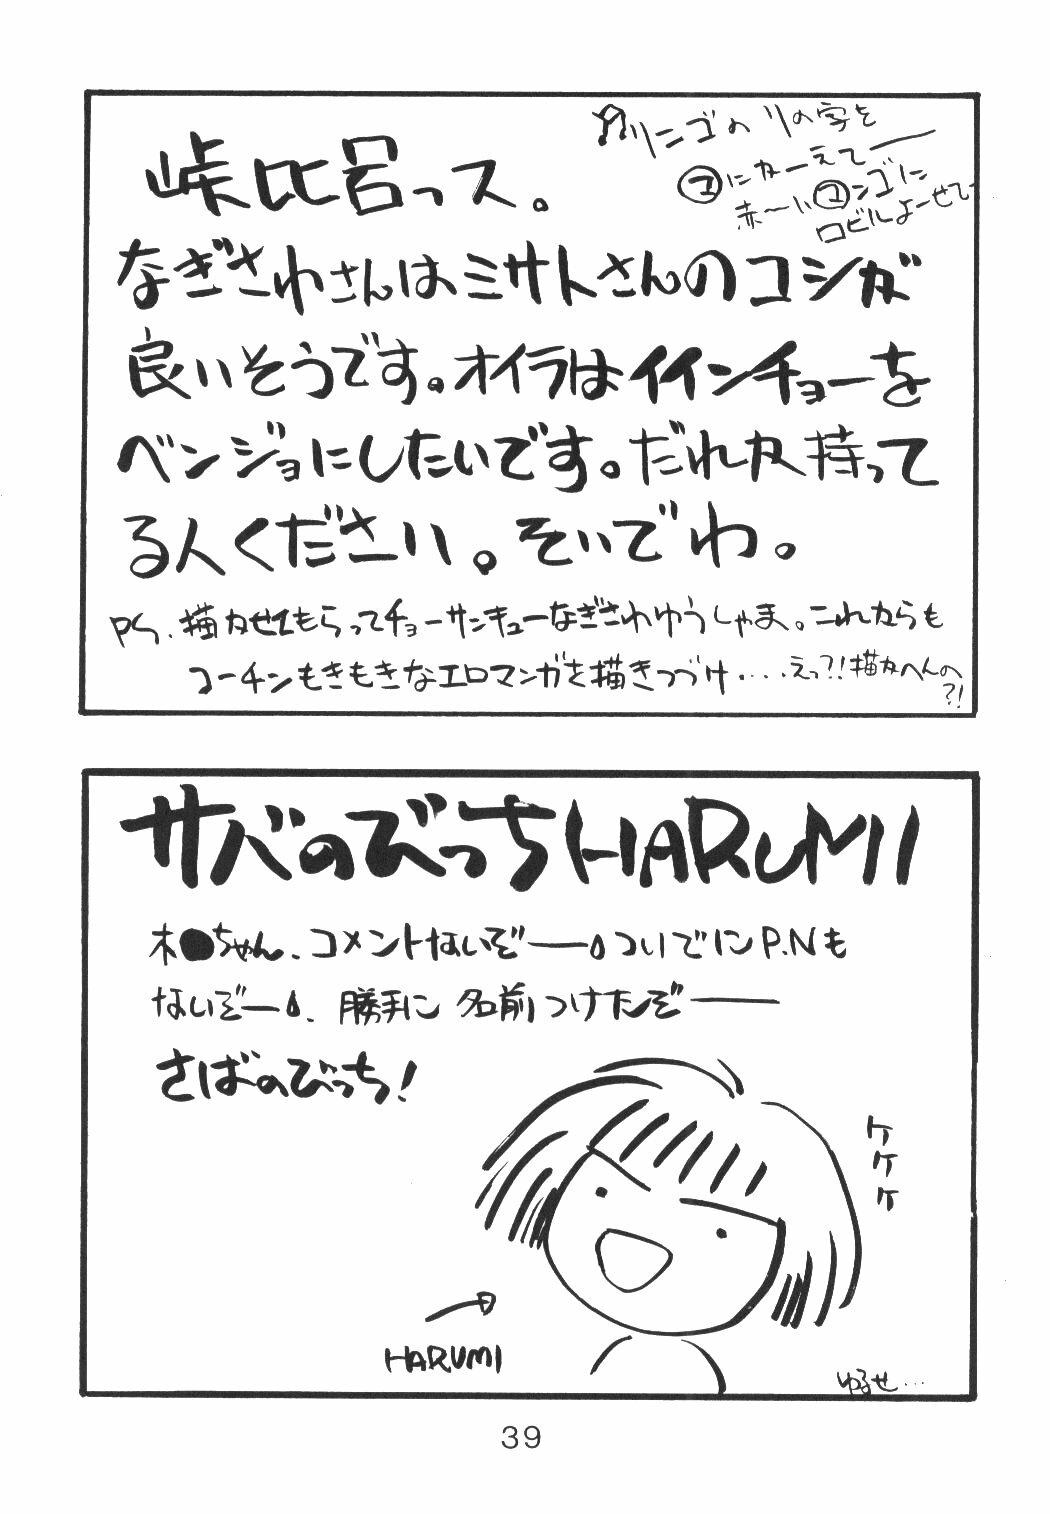 峠比呂っス。
リンゴのリの字を
マにかーえてー
赤〜いマンゴに
ロビルよーせて
なぎさわさんはミサトさんのコシが
良いそうです。オイラはイインチョーを
ベンジョにしたいです。だれか持って
る人ください。そいでわ。
PS.描かせてもらってチョーサンキューなぎさわゆうしゃま。これからも
コーチンもきもきなエロマンガを描きつづけ‥‥えっ?!描かへんの
?!
サバのびっちHARUMI
木●ちゃん、コメントないぞー。ついでにP.Nも
ないぞー。勝手に名前つけたぞー
さばのびっち!
ケケケ
HARUMI
ゆるせ…
39